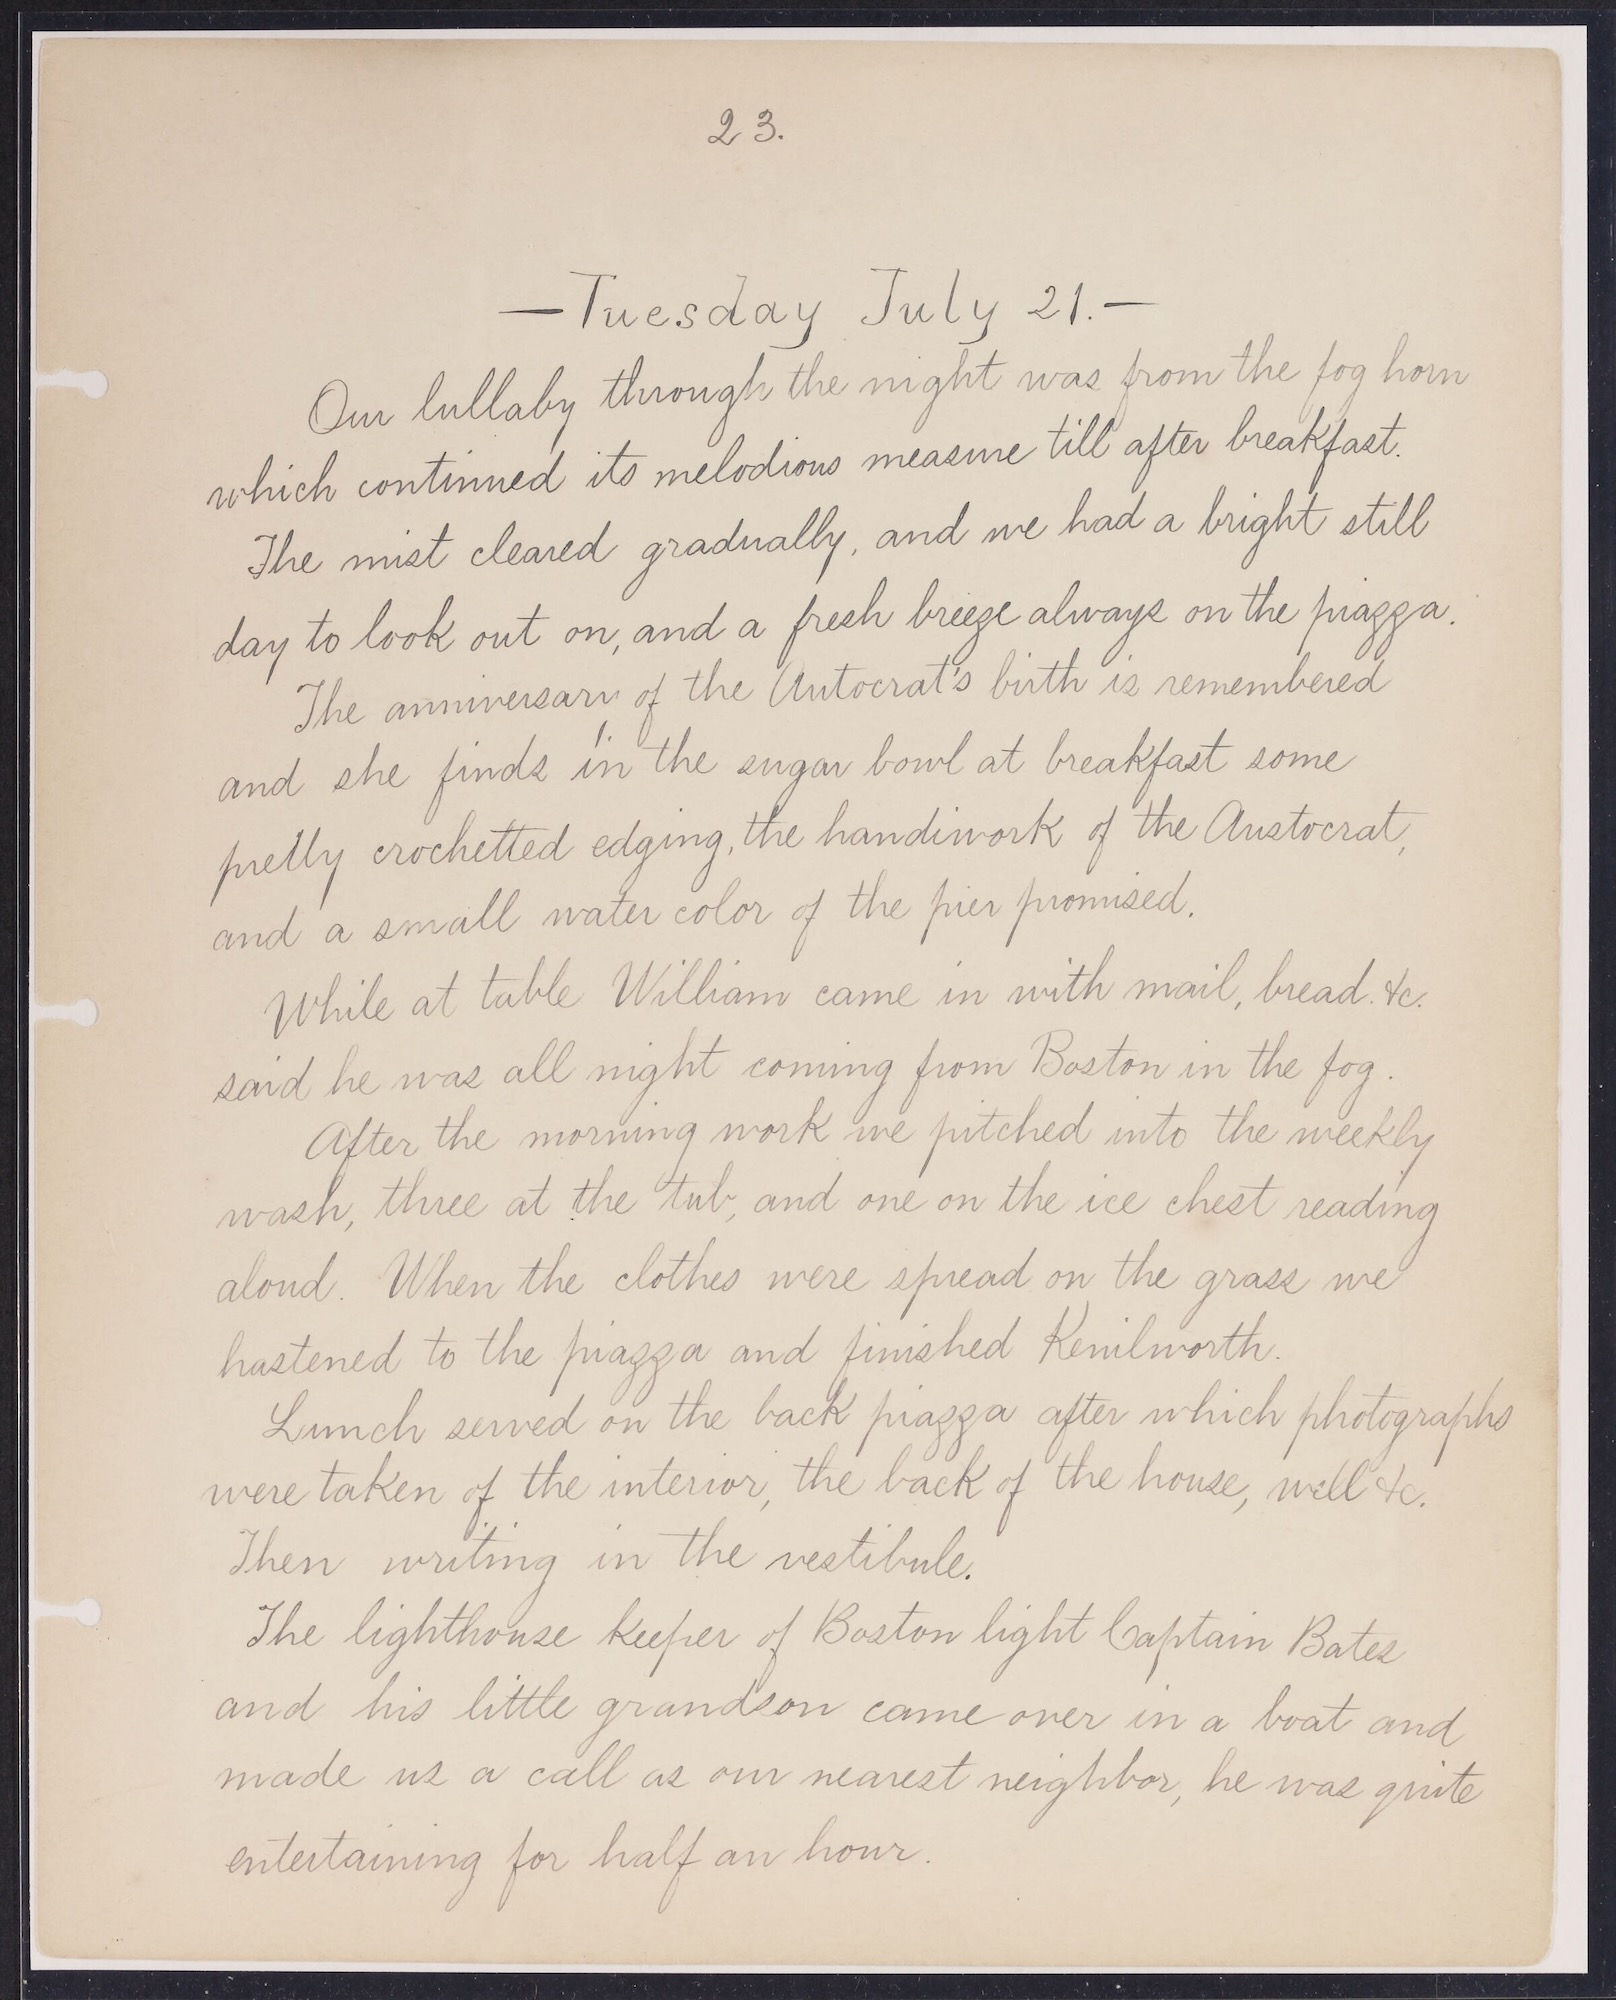 23.
—Tuesday July 21.—
Our lullaby through the night was from the fog horn
which continued its melodious measure till after breakfast.
The mist cleared gradually, and we had a bright still
day to look out on, and a fresh breeze always on the piazza.
The anniversary of the Autocrat's birth is remembered
and she finds in the sugar bowl at breakfast some
pretty crochetted edging, the handiwork of the Aristocrat,
and a small water color of the pier promised.
While at table William came in with mail, bread. &c.
said he was all night coming from Boston in the fog.
After the morning work we pitched into the weekly
wash, three at the tub, and one on the ice chest reading
aloud. When the clothes were spread on the grass we
hastened to the piazza and finished Kenilworth.
Lunch served on the back piazza after which photographs
were taken of the interior, the back of the house, well &c.
Then writing in the vestibule.
The lighthouse keeper of Boston light Captain Bates
and his little grandson came over in a boat and
made us a call as our nearest neighbor, he was quite
entertaining for half an hour.